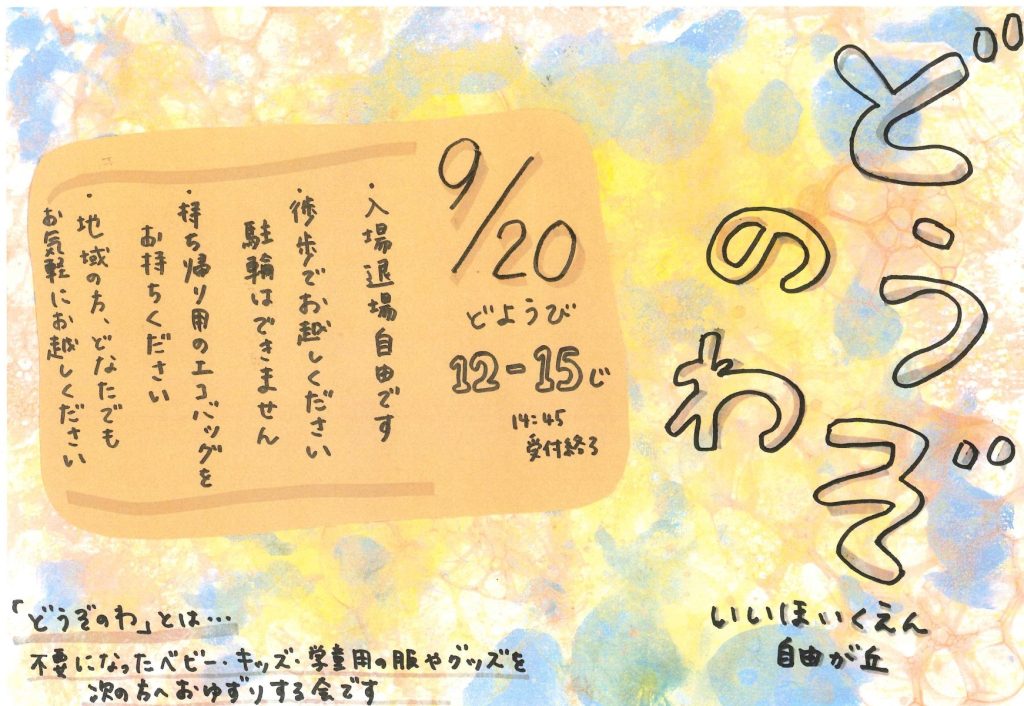 どうぞ
のわ
いいほいくえん
自由が丘
9/20
どようび
12-15じ
14:45
受付終了
・入場退場自由です
・徒歩でお越しください
駐輪はできません
・持ち帰り用のエコバッグを
お持ちください
・地域の方、どなたでも
お気軽にお越しください
「どうぞのわ」とは…
不要になったベビー・キッズ・学童用の服やグッズを
次の方へおゆずりする会です